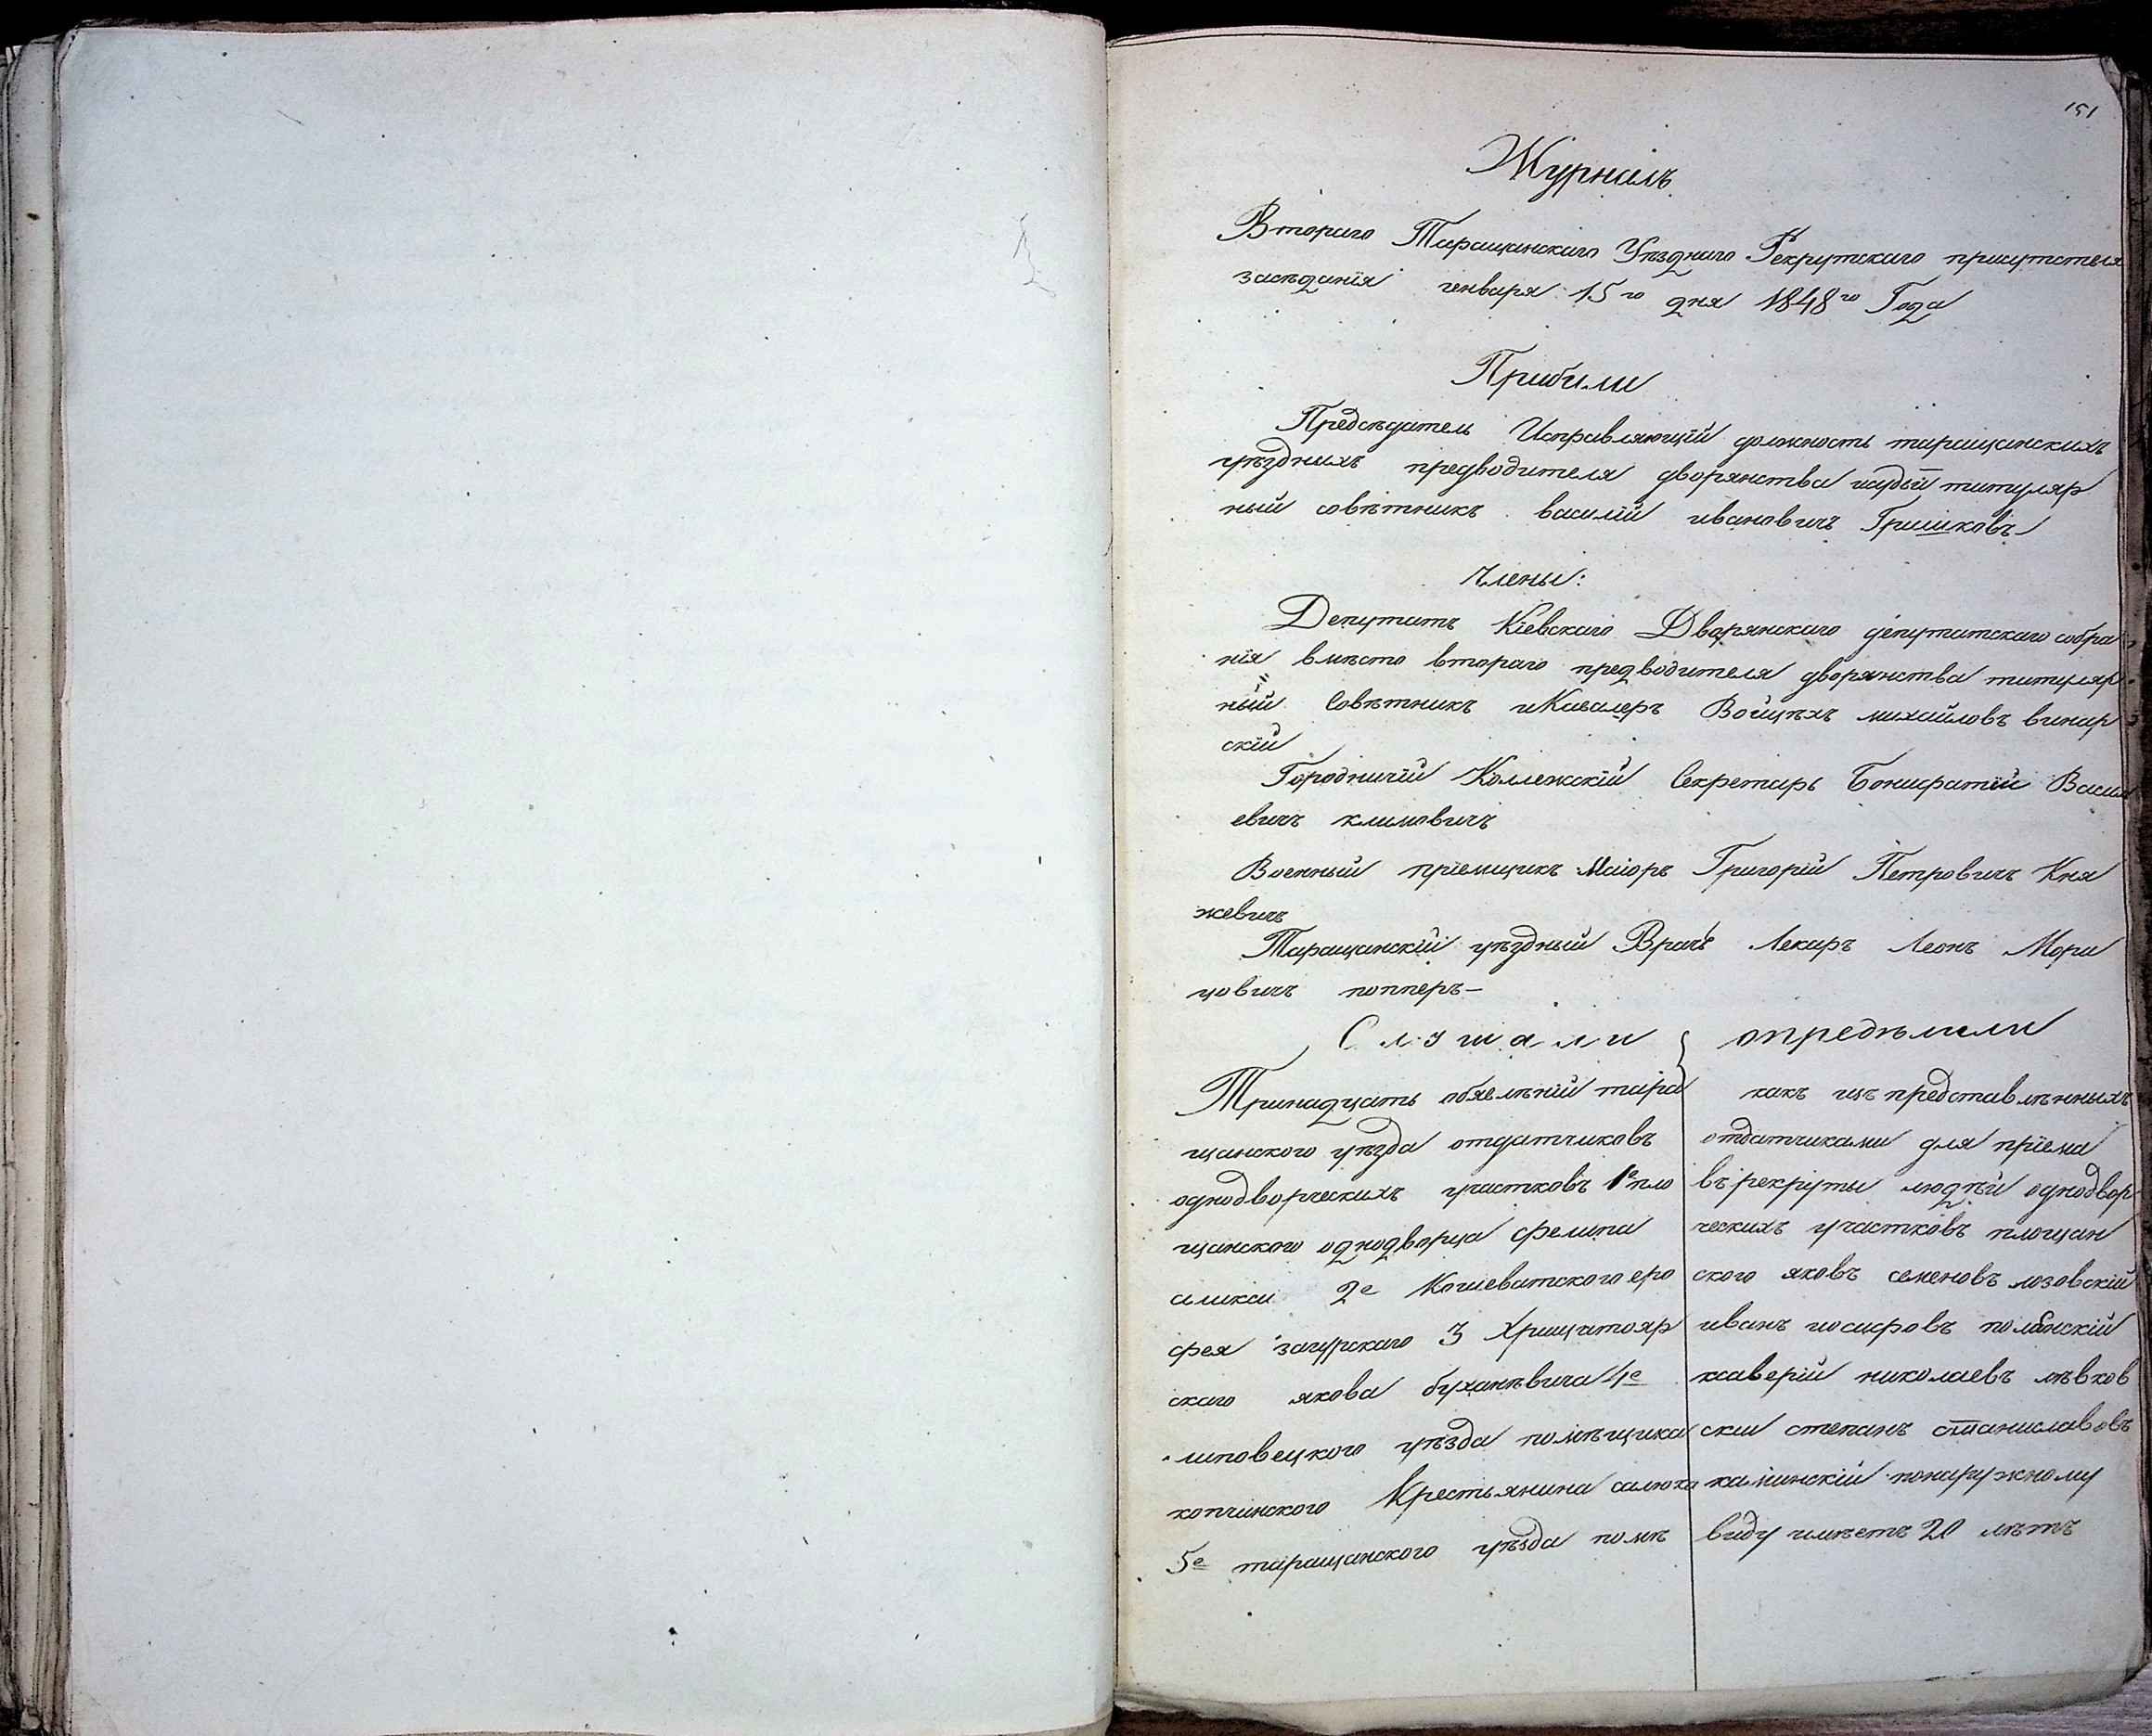 151
Журналъ
Втораго Таращанскаго Уѣзднаго Рекрутскаго присутствія
засѣданія генваря 15го дня 1848го Года
Прибили
Предсѣдатель Исправляющій должность таращанскихъ
уѣздныхъ предводителя дворянства судьи титуляр
ный совѣтникъ василій ивановичъ Гришковъ
Члены:
Депутатъ Кіевскаго Дворянскаго депутатскаго собра
нія вмѣсто втораго предводителя дворянства титуляр
ный Совѣтникъ иКавалеръ Войцѣхъ михайловъ винар
скій
Городничій Колежскій Секретарь Бонифатій Васил
евичъ климовичъ
Военный пріемщикъ Маіоръ Григорій Петровичъ Кня
жевичъ
Таращанскій уѣздный Врачъ Лекаръ Леонъ Мори
цовичъ попперъ—
Слушали
Тринадцать обявлѣній тара
щанского уѣзда отдатчиковъ
однодворческихъ участковъ 1е пло
щанского однодворца фелипа
2е Кошеватского еро
фея загурскаго 3
скаго якова буханѣвича 4е
липовецкого уѣзда помѣщика
копчинского Крестьянина
5е таращанского уѣзда помѣ
опредѣлили
какъ изъ представлѣнныхъ
отдатчиками для пріема
въ рекруты людѣй однодвор
ческихъ участковъ площан
ского яковъ семеновъ лозовскій
иванъ иосифовъ полѣнскій
ксаверій николаевъ лѣвков
скій степанъ станиславовъ
калинскій понаружному
виду имѣетъ 20 лѣтъ